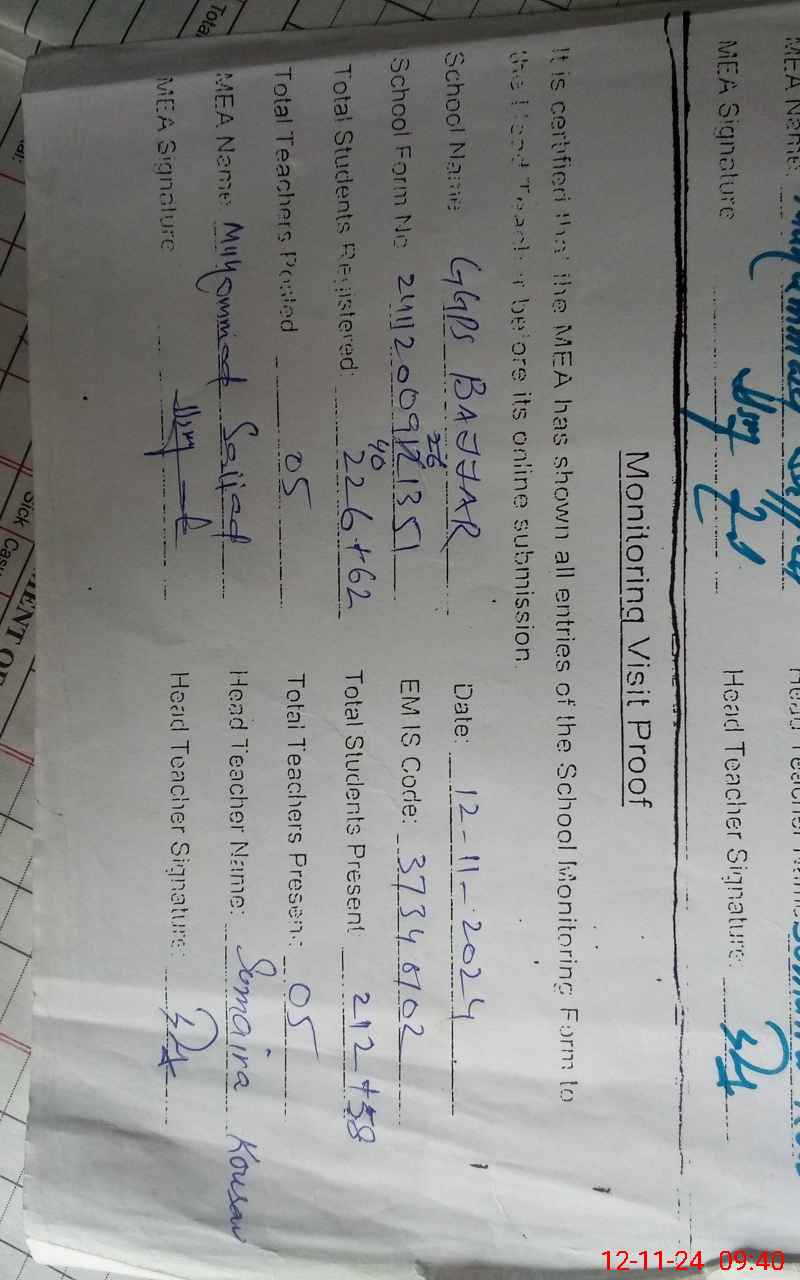 MEA Name:
MEA Signature
Head Teacher Signature:
Monitoring Visit Proof
It is certified that the MEA has shown all entries of the School Monitoring Form to
the Head Teacher before its online submission.
School Name GGPS BAJJAR Date: 12-11-2024
School Form No EMIS Code: 37340102
Total Students Registered: 226+62 Total Students Present 212+58
Total Teachers Posted 05 Total Teachers Present: 05
MEA Name Muhammad Sajjad Head Teacher Name: Sumaira Kousar
MEA Signature Head Teacher Signature:
Total
Sick
12-11-24 09:40